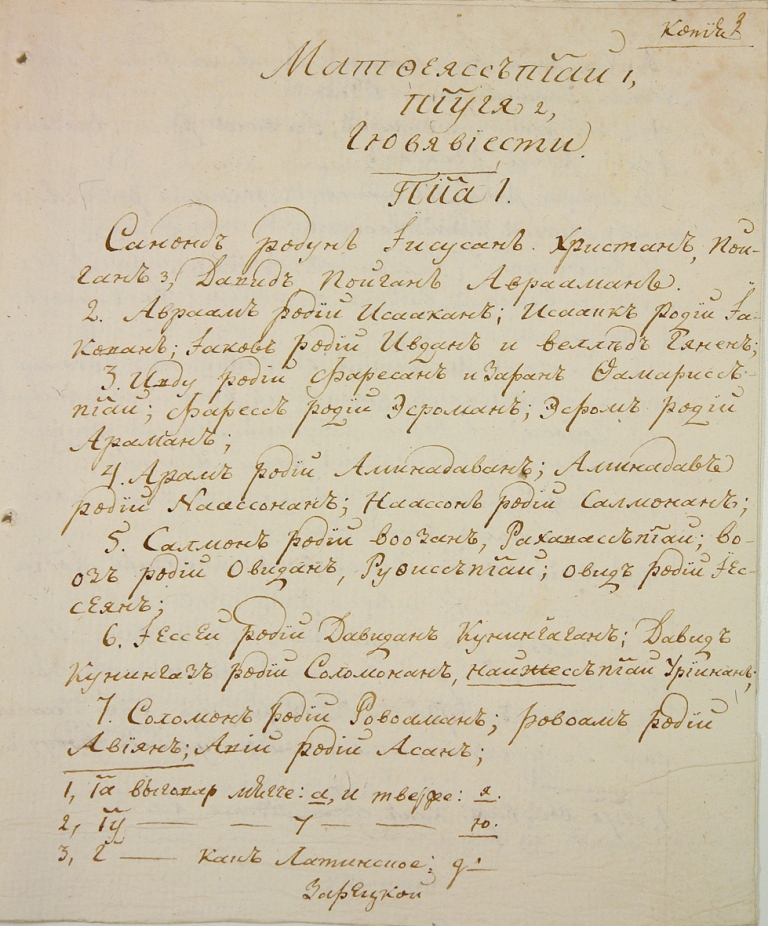 Копiя
Матѳеяссъпi͡аи 1,
пi͡угя 2,
гювявiести.
Пi͡а 1.
Санондъ родунъ Iисусанъ Христанъ, Пой-
ганъ 3, Давидъ Пойганъ Авраамань.
2. Авраамъ родiй Исааканъ; Исаакъ Родiй Iа-
кованъ; Iаковъ родiй Иvданъ и веллѣдъ Гяненъ;
3. Иvду родiй Фаресанъ и Заранъ Ѳамариссъ-
пi͡аи; Фаресъ родiй Эсроманъ; Эсромъ родiй
Араманъ;
4. Арамъ родiй Аминадаванъ; Аминадавъ
родiй Наассонанъ; Наассонъ родiй Салмонанъ;
5. Салмонъ родiй Воозанъ, Рахавассъпi͡аи; Во-
озъ родiй Овиданъ, Руѳиссъпi͡аи; Овидъ родiй Iес-
сеянъ;
6. Iессей родiй Давиданъ Кунингаганъ; Давидъ
Кунингазъ родiй Соломонанъ, найжессъпi͡аи Урiинанъ;
7. Соломонъ родiй Ровоаманъ; Ровоамъ родiй
Авiянъ; Авiй родiй Асанъ;
1, i͡а выговар мягче: а, и тверже: я.
2, i͡у — — у — — ю.
3, г — какъ Латинское: g.
Зарецкой